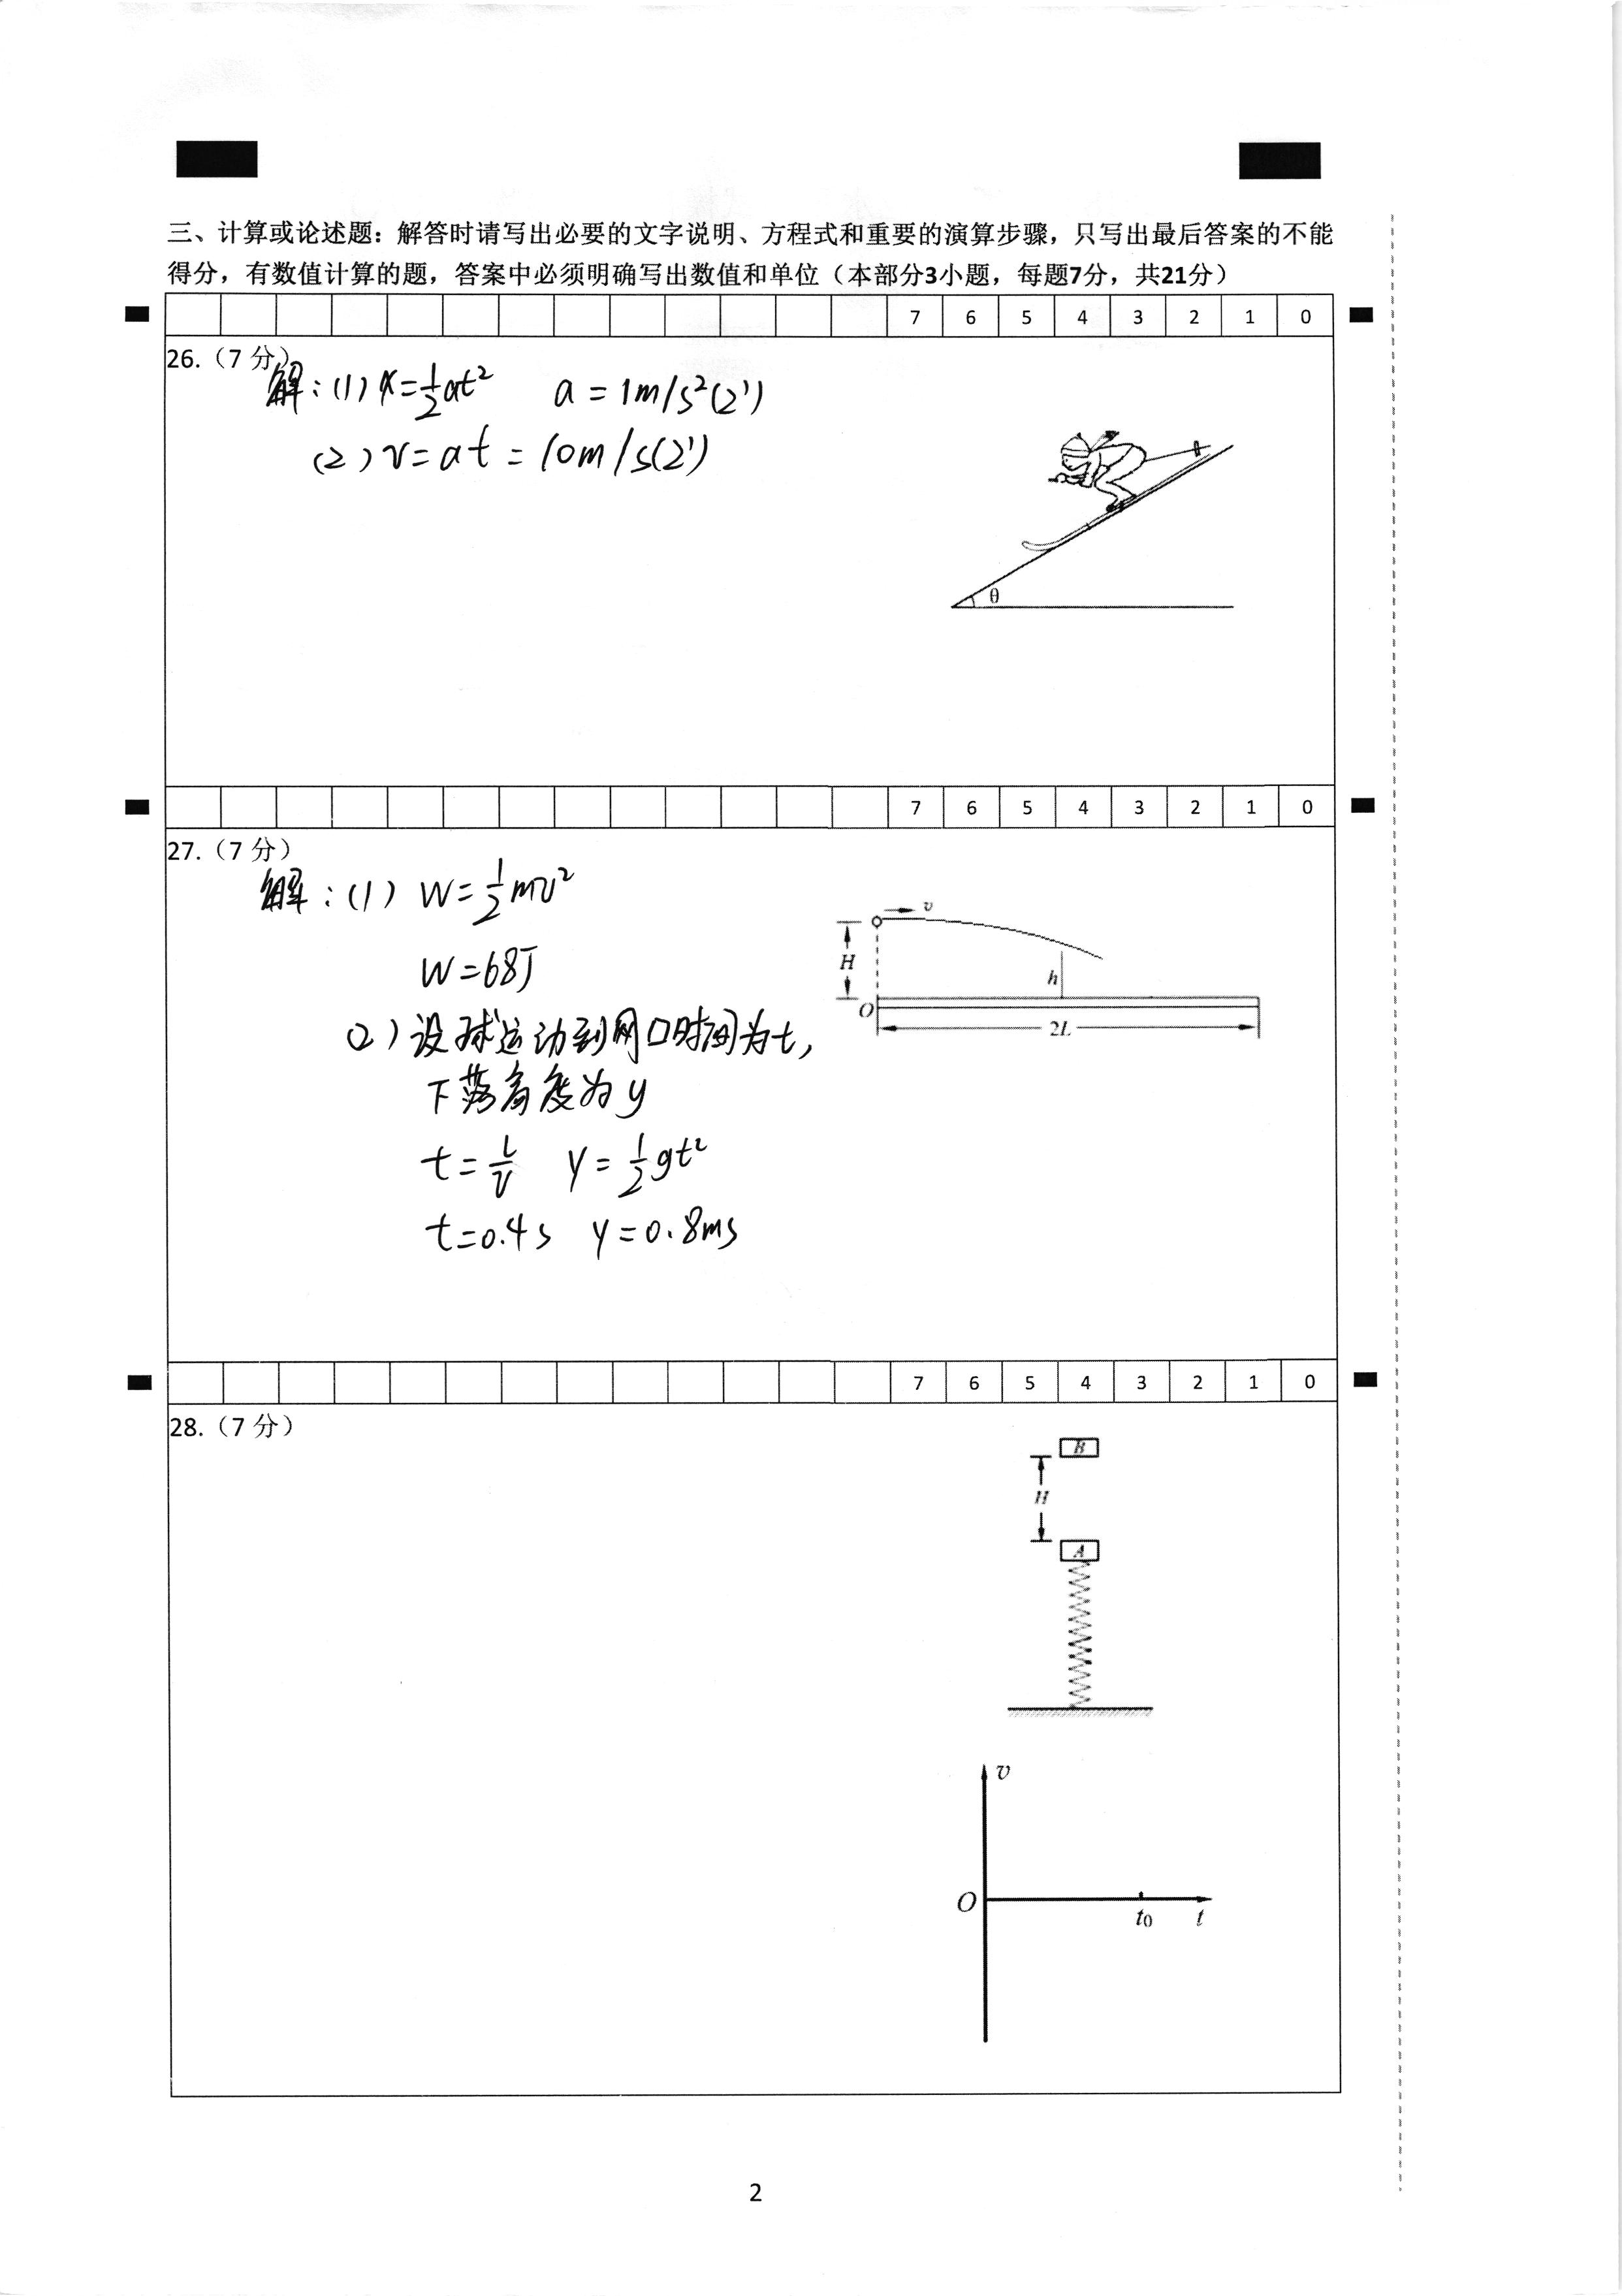 三、计算或论述题：解答时请写出必要的文字说明、方程式和重要的演算步骤，只写出最后答案的不能
得分，有数值计算的题，答案中必须明确写出数值和单位（本部分3小题，每题7分，共21分）
7 6 5 4 3 2 1 0
26.（7 分）
解：(1) x=½at² a = 1m/s²(2')
(2) v=at = 10m/s(2')
θ
7 6 5 4 3 2 1 0
27.（7 分）
解：(1) W=½mv²
W=68J
(2) 设球运动到网口时间为t，
下落高度为y
t=L/v y=½gt²
t=0.4s y=0.8ms
v
H
h
O
2L
7 6 5 4 3 2 1 0
28.（7 分）
B
H
A
v
O
t₀ t
2